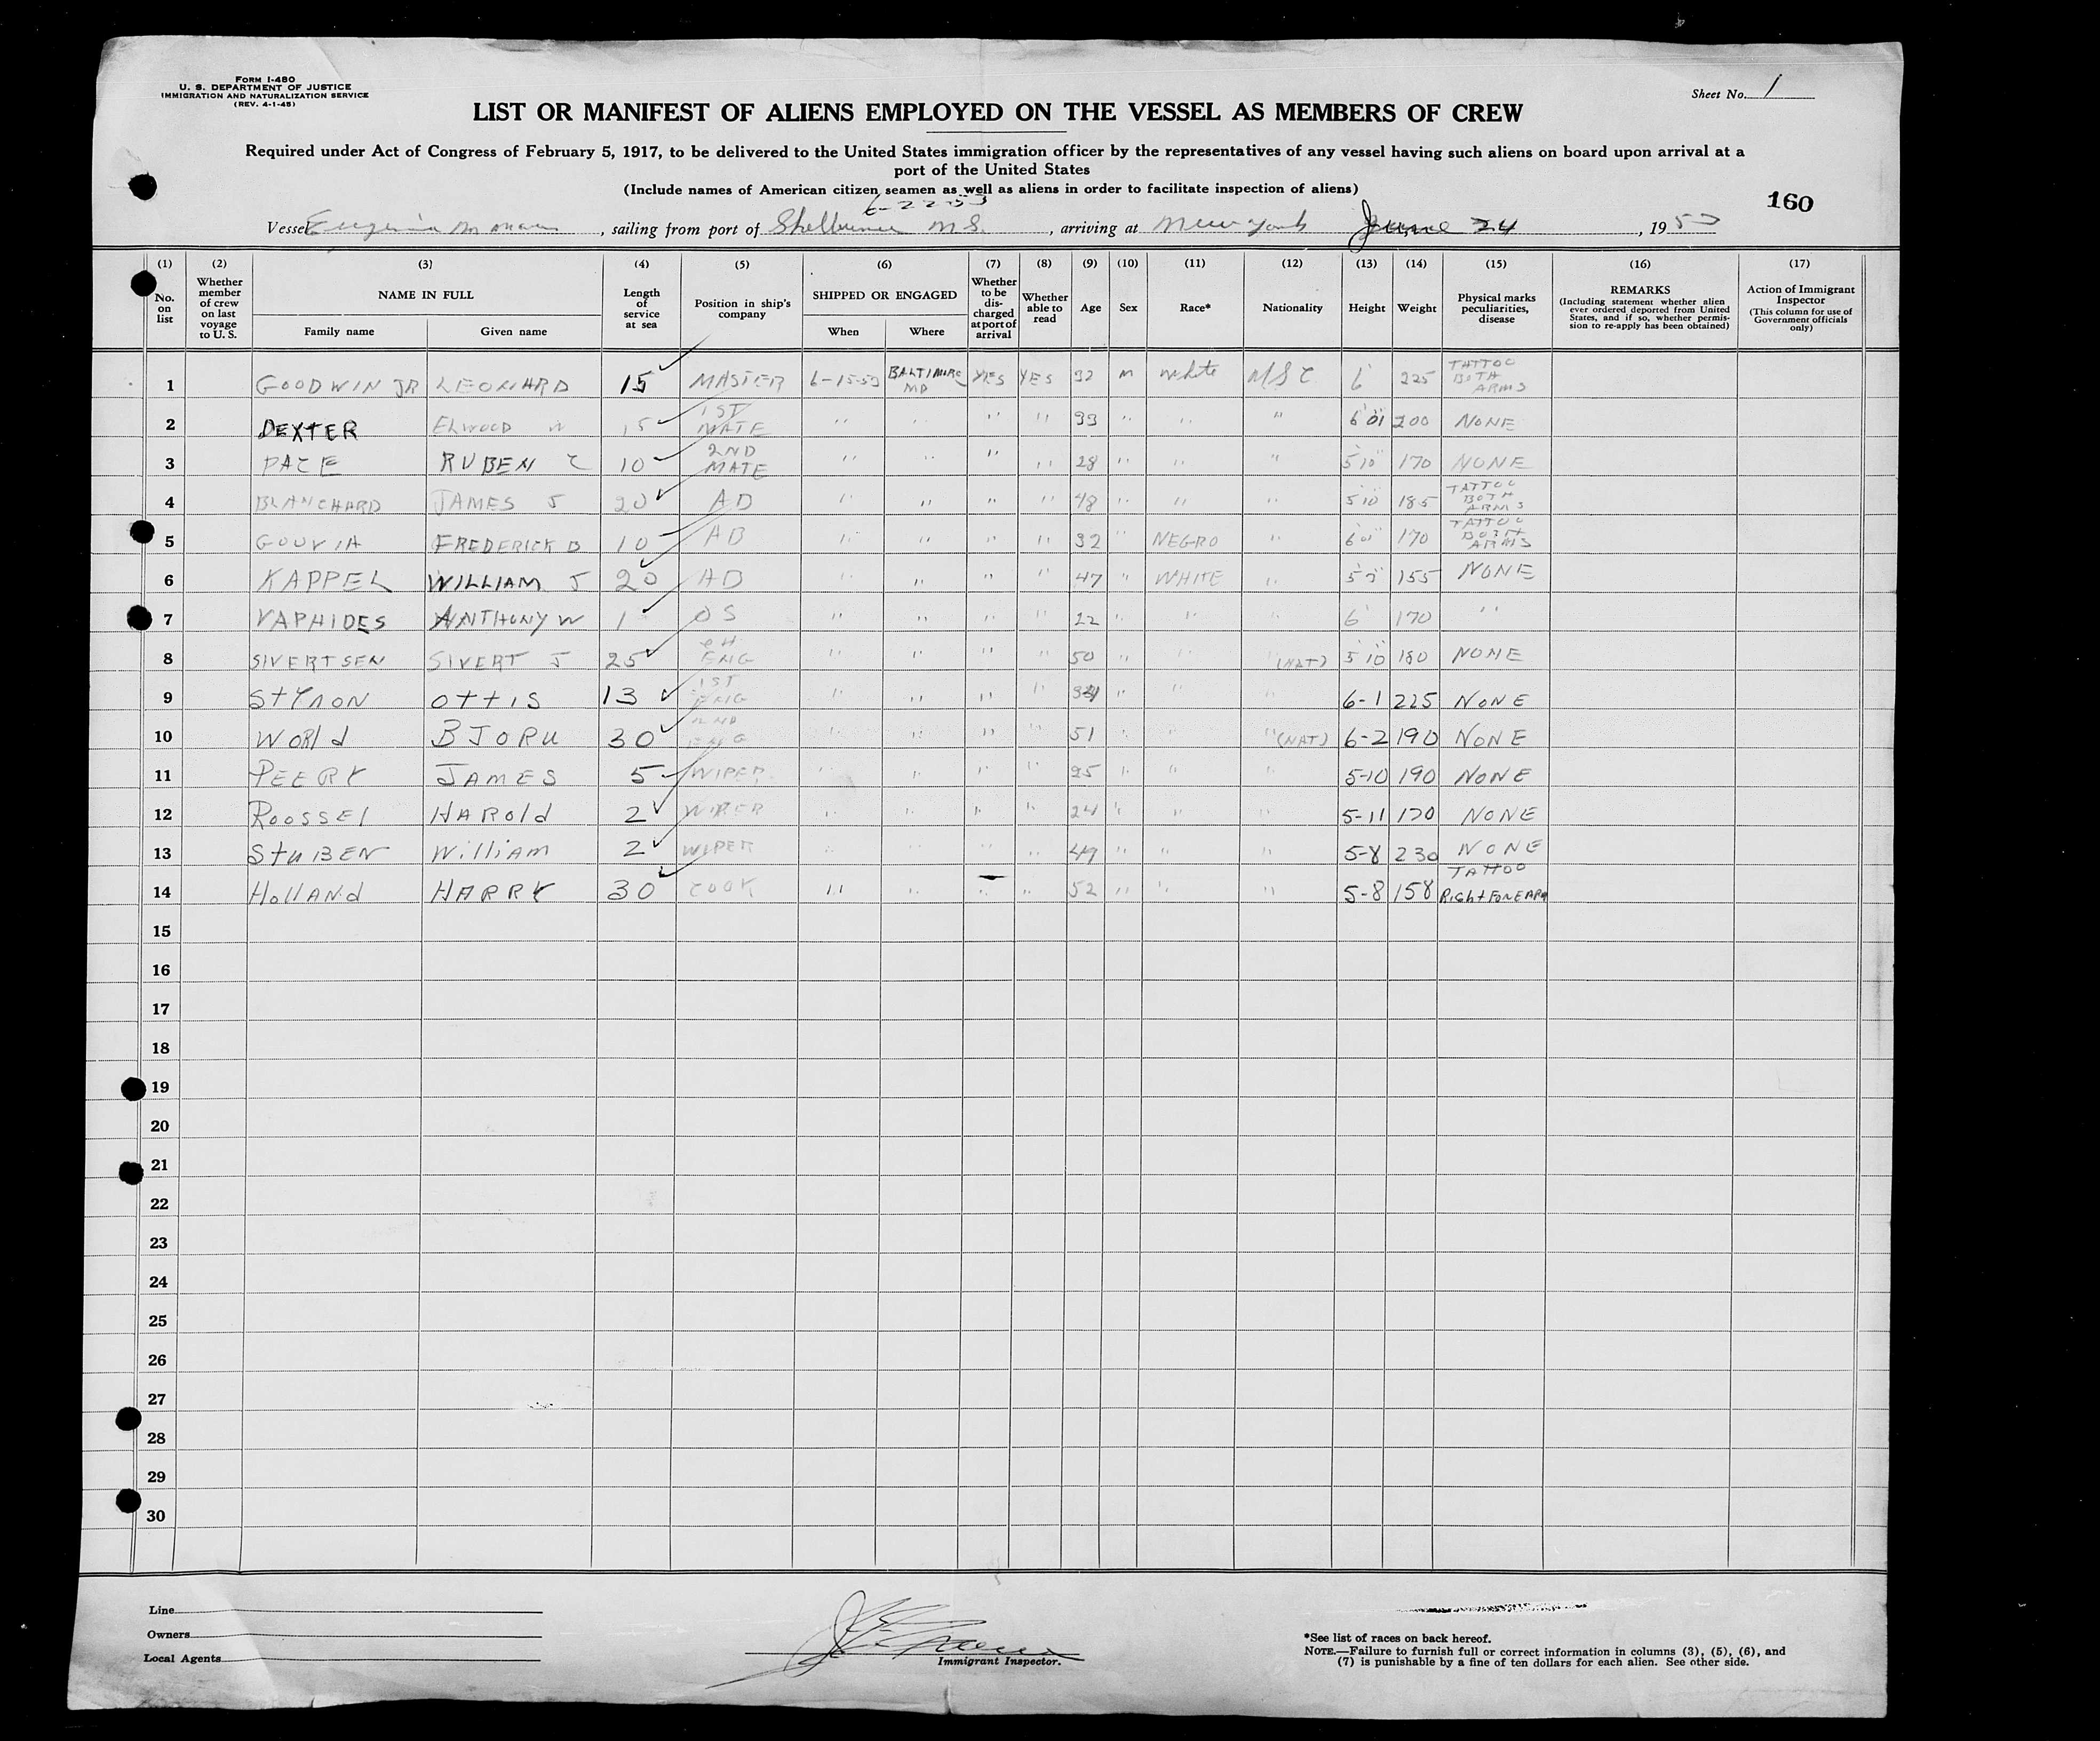 FORM I-480
U. S. DEPARTMENT OF JUSTICE
IMMIGRATION AND NATURALIZATION SERVICE
(REV. 4-1-45)
Sheet No. 1
LIST OR MANIFEST OF ALIENS EMPLOYED ON THE VESSEL AS MEMBERS OF CREW
Required under Act of Congress of February 5, 1917, to be delivered to the United States immigration officer by the representatives of any vessel having such aliens on board upon arrival at a
port of the United States
(Include names of American citizen seamen as well as aliens in order to facilitate inspection of aliens)
160
6-22-53
Vessel Eugenia, sailing from port of Shelburne N.S., arriving at New York June 24, 1953
(1) (2) (3) (4) (5) (6) (7) (8) (9) (10) (11) (12) (13) (14) (15) (16) (17)
No. on list
Whether member of crew on last voyage to U. S.
NAME IN FULL
Family name Given name
Length of service at sea
Position in ship's company
SHIPPED OR ENGAGED
When Where
Whether to be discharged at port of arrival
Whether able to read
Age
Sex
Race*
Nationality
Height
Weight
Physical marks peculiarities, disease
REMARKS
(Including statement whether alien ever ordered deported from United States, and if so, whether permission to re-apply has been obtained)
Action of Immigrant Inspector
(This column for use of Government officials only)
1 GOODWIN JR LEONARD 15 MASTER 6-15-53 BALTIMORE MD YES YES 32 M White 6' 225 TATTOO BOTH ARMS
2 DEXTER ELWOOD W 15 1ST MATE " " " " 33 " " " 6'01 200 NONE
3 PACE RUBEN C 10 2ND MATE " " " " 28 " " " 5'10 170 NONE
4 BLANCHARD JAMES J 20 AB " " " " 48 " " " 5'10 185 TATTOO BOTH ARMS
5 GOUVIA FREDERICK B 10 AB " " " " 32 " NEGRO " 6'01 170 TATTOO BOTH ARMS
6 KAPPEL WILLIAM J 20 AB " " " " 47 " WHITE " 155 NONE
7 VAPHIDES ANTHONY W 1 OS " " " " 22 " " " 6' 170 "
8 SIVERTSEN SIVERT J 25 CH ENG " " " " 50 " " " (NAT) 5'10 180 NONE
9 STYRON OTTIS 13 1ST ENG " " " " 34 " " " 6-1 225 NONE
10 WORld BJORU 30 2ND ENG " " " " 51 " " " (NAT) 6-2 190 NONE
11 PEERY JAMES 5 WIPER " " " " 25 " " " 5-10 190 NONE
12 ROOSSEl HAROld 2 WIPER " " " " 24 " " " 5-11 170 NONE
13 STUBEN William 2 WIPER " " " " 49 " " " 5-8 230 NONE
14 HOLLANd HARRY 30 COOK " " " " 52 " " " 5-8 158 TATTOO Right FOREARM
15
16
17
18
19
20
21
22
23
24
25
26
27
28
29
30
Line
Owners
Local Agents
Immigrant Inspector.
*See list of races on back hereof.
NOTE.—Failure to furnish full or correct information in columns (3), (5), (6), and
(7) is punishable by a fine of ten dollars for each alien. See other side.